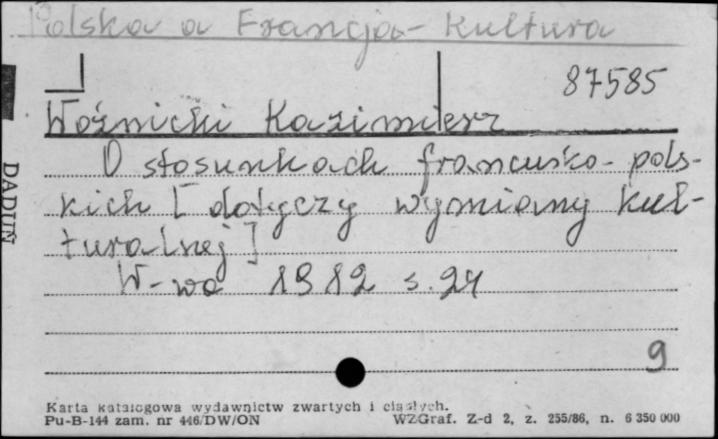 Polska a Francja - Kultura
87585
Woźnicki Kazimierz
O stosunkach francusko-pols-
kich [dotyczy wymiany kul-
turalnej]
W-wa 1912 s. 24
9
DADUŃ
Karta katalogowa wydawnictw zwartych i ciągłych.
Pu-B-144 zam. nr 446/DW/ON WZGraf. Z-d 2, z. 255/86, n. 6 350 000